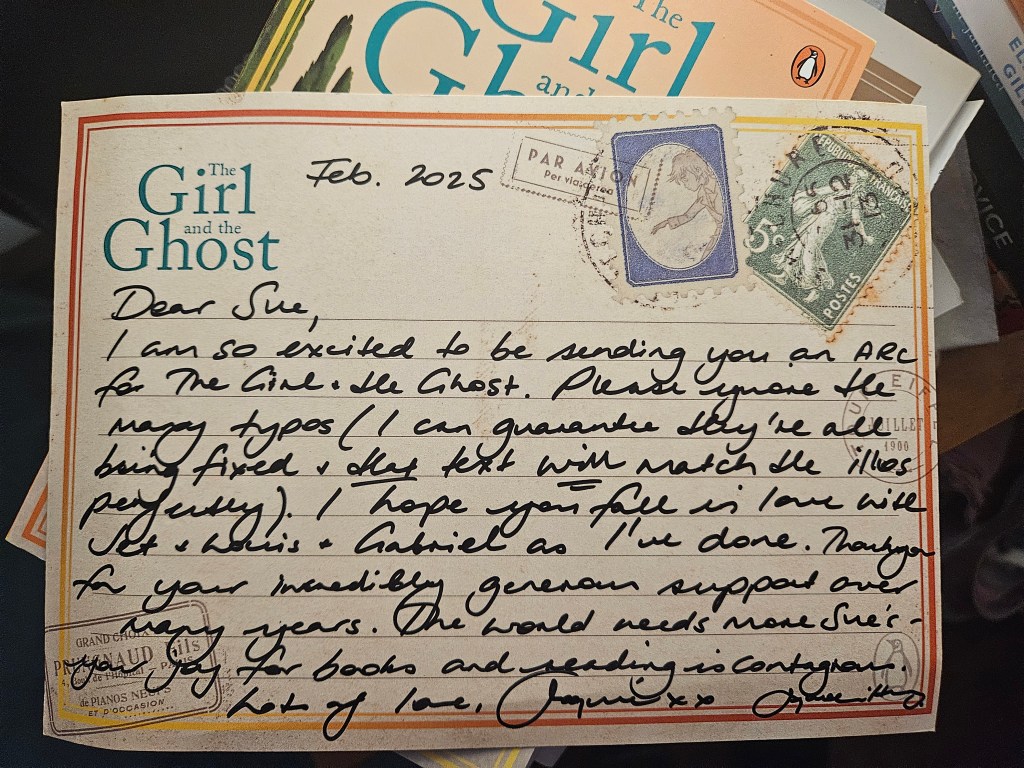 The
Girl
and
Gh
EL
GIL
VICE
The
Girl
and the
Ghost
Feb. 2025
PAR AVION
Per via aerea
RÉPUBLIQUE FRANÇAISE
5c
31-12
13
POSTES
Dear Sue,
I am so excited to be sending you an ARC
for The Girl + the Ghost. Please ignore the
many typos (I can guarantee they're all
being fixed + the text will match the illos
perfectly). I hope you fall in love with
Jet + Louis + Gabriel as I've done. Thank you
for your incredibly generous support over
many years. The world needs more Sue's -
your joy for books and reading is contagious.
Lots of love, Jacqueline xx
EIF
JUILLET
1900
GRAND CHOIX
Fils
PARIS
de PIANOS NEUFS
ET D'OCCASION